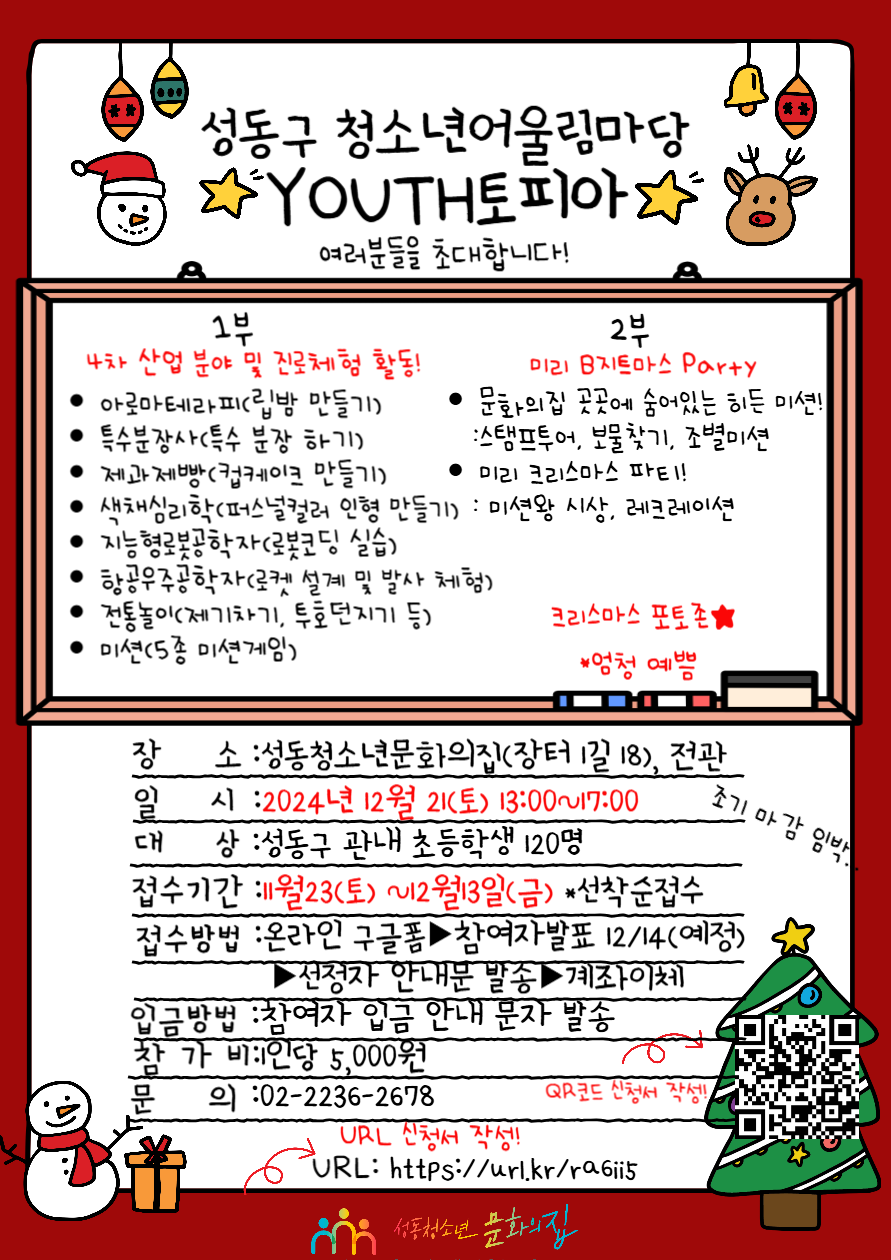 성동구 청소년어울림마당
YOUTH토피아
여러분들을 초대합니다!
1부
4차 산업 분야 및 진로체험 활동!
● 아로마테라피(립밤 만들기)
● 특수분장사(특수 분장 하기)
● 제과제빵(컵케이크 만들기)
● 색채심리학(퍼스널컬러 인형 만들기)
● 지능형로봇공학자(로봇코딩 실습)
● 항공우주공학자(로켓 설계 및 발사 체험)
● 전통놀이(제기차기, 투호던지기 등)
● 미션(5종 미션게임)
2부
미리 B지트마스 Party
● 문화의집 곳곳에 숨어있는 히든 미션!
:스탬프투어, 보물찾기, 조별미션
● 미리 크리스마스 파티!
: 미션왕 시상, 레크레이션
크리스마스 포토존★
*엄청 예쁨
장 소 :성동청소년문화의집(장터 1길 18), 전관
일 시 :2024년 12월 21(토) 13:00~17:00
조기 마감 임박..
대 상 :성동구 관내 초등학생 120명
접수기간 :11월23(토) ~12월13일(금) *선착순접수
접수방법 :온라인 구글폼▶참여자발표 12/14(예정)
▶선정자 안내문 발송▶계좌이체
입금방법 :참여자 입금 안내 문자 발송
참 가 비:1인당 5,000원
문 의 :02-2236-2678
QR코드 신청서 작성!
URL 신청서 작성!
URL: https://url.kr/ra6ii5
성동청소년 문화의집